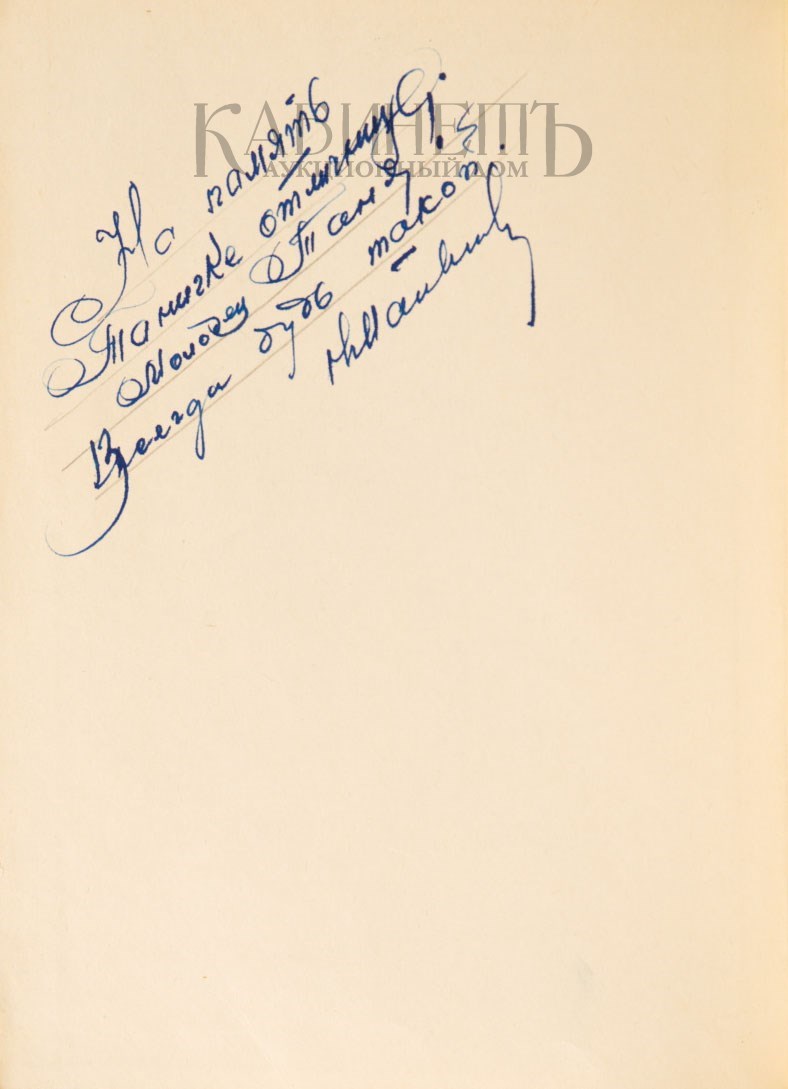 КАБИНЕТЪ
АУКЦИОННЫЙ ДОМ
На память
Таничке отличнице!
Молодец Таня!
Всегда будь такой!